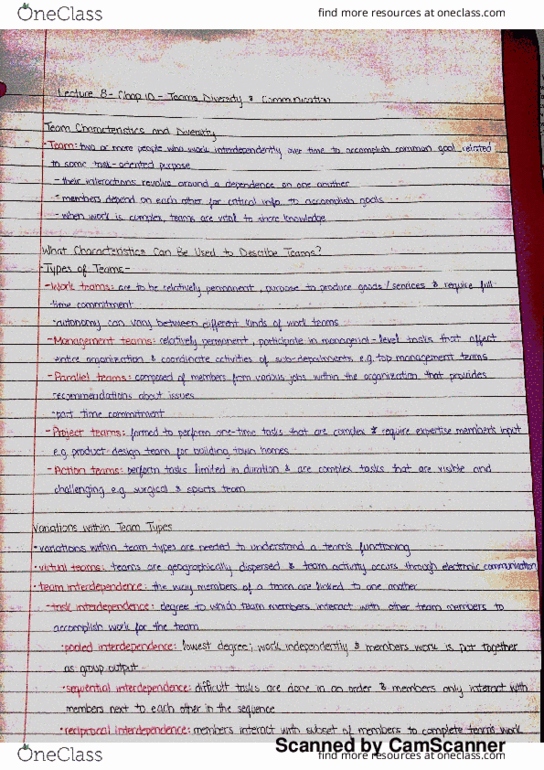 OneClass
find more resources at oneclass.com
Lecture 8 - Chap 10 - Teams Diversity & Communication
Team Characteristics and Diversity
·Team: two or more people who work interdependently over time to accomplish common goal related
to some task-oriented purpose
- their interactions revolve around a dependence on one another
- members depend on each other for critical info to accomplish goals
- when work is complex, teams are vital to share knowledge
What Characteristics Can Be Used to Describe Teams?
·Types of Teams-
-Work teams: are to be relatively permanent, purpose to produce goods/services & require full
-time commitment
·autonomy can vary between different kinds of work teams
-Management teams: relatively permanent, participate in managerial-level tasks that affect
entire organization & coordinate activities of sub-departments, e.g. top management teams
-Parallel teams: composed of members from various jobs within the organization that provides
recommendations about issues
·part time commitment
-Project teams: formed to perform one-time tasks that are complex & require expertise members input
e.g. product-design team for building town homes
-Action teams: perform tasks limited in duration & are complex tasks that are visible and
challenging e.g. surgical & sports team
Variations within Team Types
·variations within team types are needed to understand a team's functioning
·virtual teams: teams are geographically dispersed & team activity occurs through electronic communication
·team interdependence: the way members of a team are linked to one another
·task interdependence: degree to which team members interact with other team members to
accomplish work for the team
·pooled interdependence: lowest degree; work independently & members work is put together
as group output
·sequential interdependence: difficult tasks are done in an order & members only interact with
members next to each other in the sequence
·reciprocal interdependence: members interact with subset of members to complete team's work
Scanned by CamScanner
OneClass
find more resources at oneclass.com